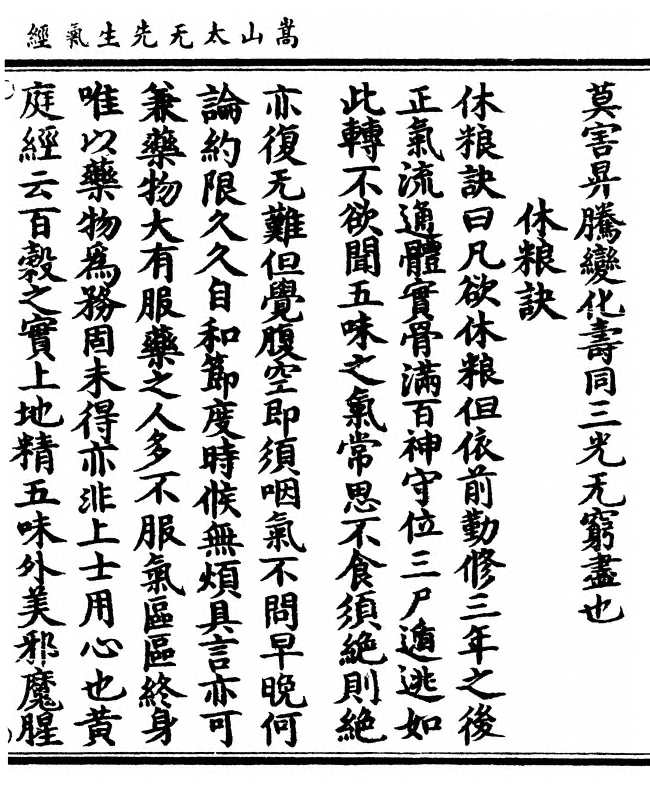 嵩山太无先生氣經
莫害昇騰變化壽同三光无窮盡也
休粮訣
休粮訣曰凡欲休粮但依前勤修三年之後
正氣流通體實骨滿百神守位三尸遁逃如
此轉不欲聞五味之氣常思不食須絶則絶
亦復无難但覺腹空即須咽氣不問早晚何
論約限久久自和節度時候無煩具言亦可
兼藥物大有服藥之人多不服氣區區終身
唯以藥物爲務固未得亦非上士用心也黄
庭經云百穀之實土地精五味外美邪魔腥